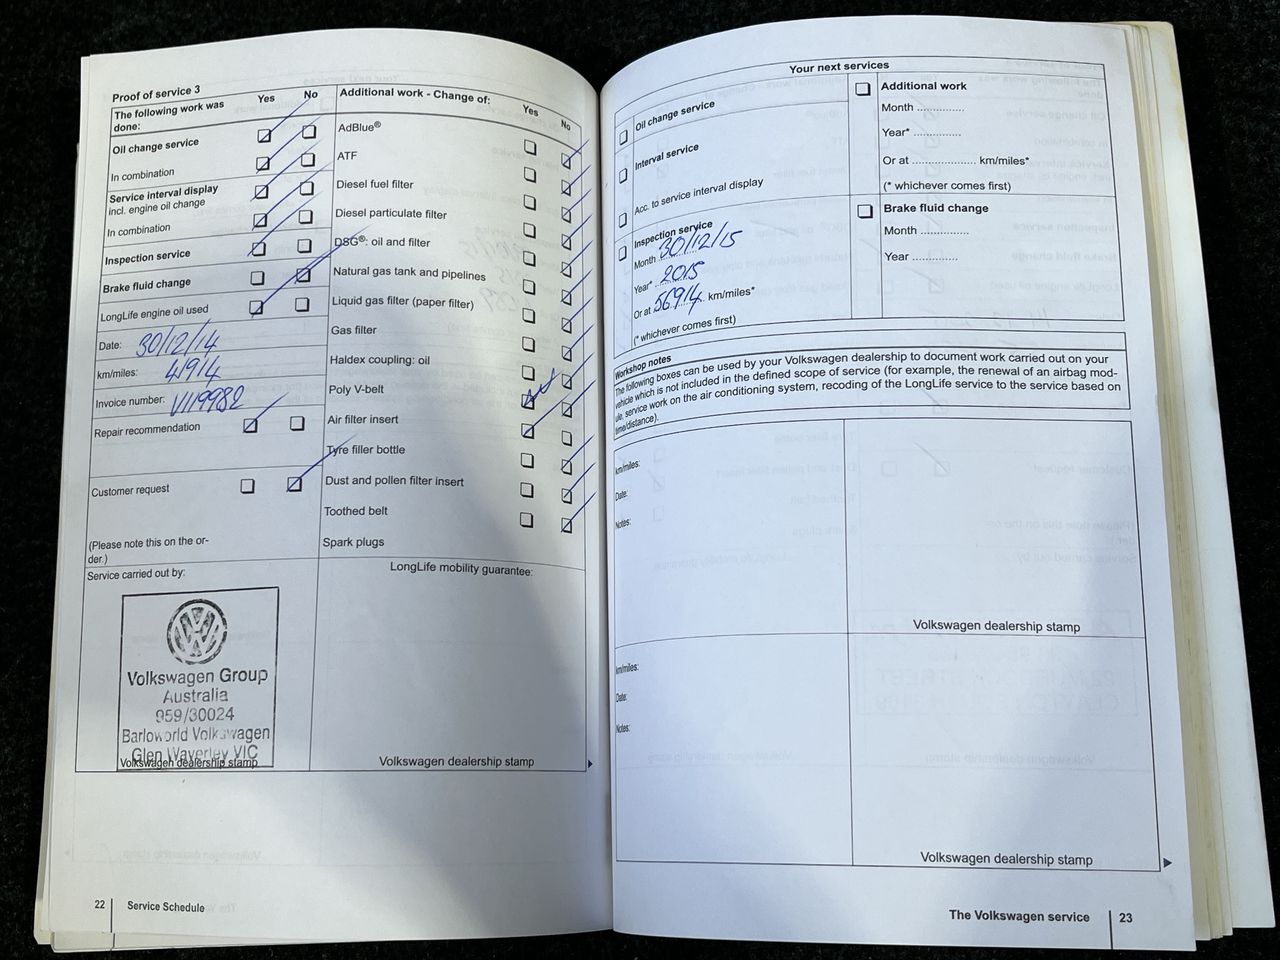 Proof of service 3
The following work was done:
Yes No
Oil change service
In combination
Service interval display
incl. engine oil change
In combination
Inspection service
Brake fluid change
LongLife engine oil used
Date: 30/12/14
km/miles: 41914
Invoice number: V119982
Repair recommendation
Customer request
(Please note this on the or-
der.)
Service carried out by:
Volkswagen Group
Australia
959/30024
Barloworld Volkswagen
Glen Waverley VIC
Volkswagen dealership stamp
Additional work - Change of:
Yes No
AdBlue®
ATF
Diesel fuel filter
Diesel particulate filter
DSG®: oil and filter
Natural gas tank and pipelines
Liquid gas filter (paper filter)
Gas filter
Haldex coupling: oil
Poly V-belt
Air filter insert
Tyre filler bottle
Dust and pollen filter insert
Toothed belt
Spark plugs
LongLife mobility guarantee:
Volkswagen dealership stamp
22 Service Schedule
Your next services
Oil change service
Interval service
Acc. to service interval display
Inspection service
Month 30/12/15
Year* 2015
Or at 56914 km/miles*
(* whichever comes first)
Additional work
Month ..............
Year* ..............
Or at .................... km/miles*
(* whichever comes first)
Brake fluid change
Month ..............
Year ..............
Workshop notes
The following boxes can be used by your Volkswagen dealership to document work carried out on your
vehicle which is not included in the defined scope of service (for example, the renewal of an airbag mod-
ule, service work on the air conditioning system, recoding of the LongLife service to the service based on
time/distance).
km/miles:
Date:
Notes:
Volkswagen dealership stamp
km/miles:
Date:
Notes:
Volkswagen dealership stamp
The Volkswagen service 23